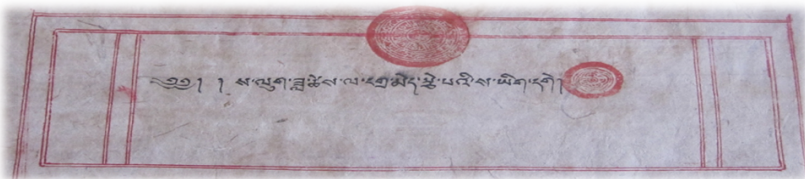 ༄༅། ། ས་ལུག་ཟླ་ཚེས་ལ་དགྲ་མེད་རྩེ་པའི་ས་ཡིག་དགེ།